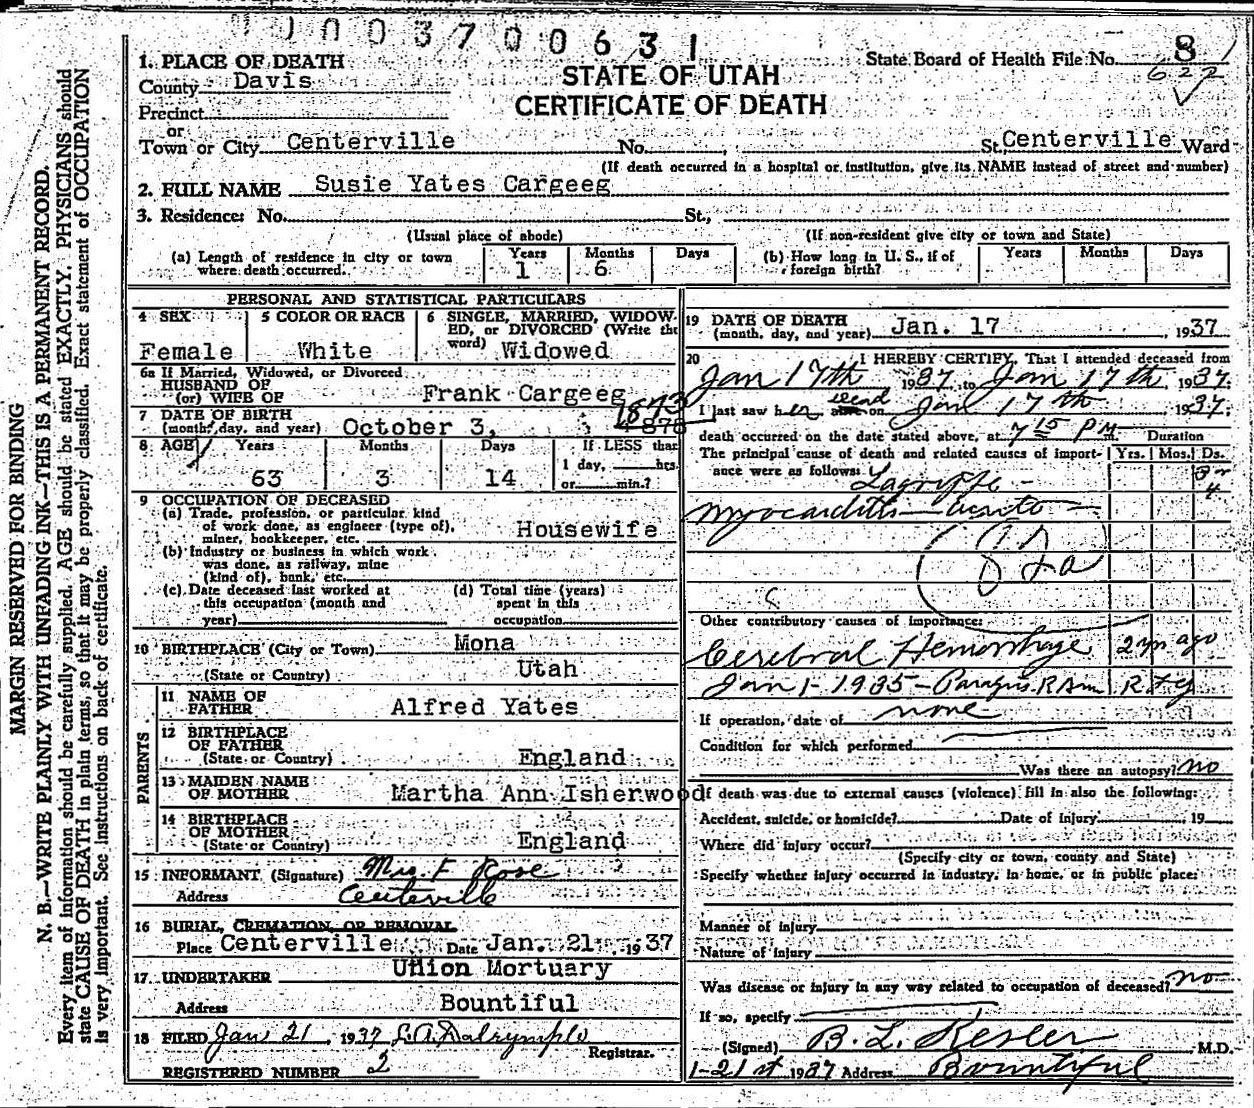 0003700631
1. PLACE OF DEATH
County Davis
Precinct
or
Town or City Centerville No. St. Centerville Ward
STATE OF UTAH
CERTIFICATE OF DEATH
State Board of Health File No. 8
622
(If death occurred in a hospital or institution, give its NAME instead of street and number)
2. FULL NAME Susie Yates Cargeeg
3. Residence: No. St.,
(Usual place of abode) (If non-resident give city or town and State)
(a) Length of residence in city or town where death occurred. Years 1 Months 6 Days
(b) How long in U. S., if of foreign birth? Years Months Days
PERSONAL AND STATISTICAL PARTICULARS
4 SEX Female
5 COLOR OR RACE White
6 SINGLE, MARRIED, WIDOWED, or DIVORCED (Write the word) Widowed
6a If Married, Widowed, or Divorced
HUSBAND OF
(or) WIFE OF Frank Cargeeg
7 DATE OF BIRTH
(month, day, and year) October 3, 1873
8 AGE Years 63 Months 3 Days 14 If LESS than
1 day, hrs.
or min.?
9 OCCUPATION OF DECEASED
(a) Trade, profession, or particular kind
of work done, as engineer (type of),
miner, bookkeeper, etc. Housewife
(b) Industry or business in which work
was done, as railway, mine
(kind of), bank, etc.
(c) Date deceased last worked at
this occupation (month and
year)
(d) Total time (years)
spent in this
occupation
10 BIRTHPLACE (City or Town) Mona
(State or Country) Utah
PARENTS
11 NAME OF
FATHER Alfred Yates
12 BIRTHPLACE
OF FATHER
(State or Country) England
13 MAIDEN NAME
OF MOTHER Martha Ann Isherwood
14 BIRTHPLACE
OF MOTHER
(State or Country) England
15 INFORMANT (Signature) Mrs. F Rose
Address Centerville
16 BURIAL, CREMATION, OR REMOVAL
Place Centerville Date Jan. 21 1937
17 UNDERTAKER Union Mortuary
Address Bountiful
18 FILED Jan 21, 1937 L.A. Dalrymple
Registrar.
REGISTERED NUMBER 2
19 DATE OF DEATH
(month, day, and year) Jan. 17 1937
20 I HEREBY CERTIFY, That I attended deceased from
Jan 17th 1937 to Jan 17th 1937
I last saw her dead on Jan 17th 1937
death occurred on the date stated above, at 7 15 P.M.
Duration
The principal cause of death and related causes of importance were as follows: Yrs. Mos. Ds.
Lagrippe - 3 or 4
Myocarditis - acute -
Other contributory causes of importance:
Cerebral Hemorrhage 2 yrs ago
Jan 1 - 1935 - R Arm
If operation, date of none
Condition for which performed
Was there an autopsy? no
If death was due to external causes (violence) fill in also the following:
Accident, suicide, or homicide? Date of injury 19
Where did injury occur?
(Specify city or town, county and State)
Specify whether injury occurred in industry, in home, or in public place:
Manner of injury
Nature of injury
Was disease or injury in any way related to occupation of deceased? no
If so, specify
(Signed) B. L. Kesler M.D.
1-21st 1937 Address Bountiful
MARGIN RESERVED FOR BINDING
N. B.—WRITE PLAINLY WITH UNFADING INK—THIS IS A PERMANENT RECORD.
Every item of information should be carefully supplied. AGE should be stated EXACTLY. PHYSICIANS should
state CAUSE OF DEATH in plain terms, so that it may be properly classified. Exact statement of OCCUPATION
is very important. See instructions on back of certificate.